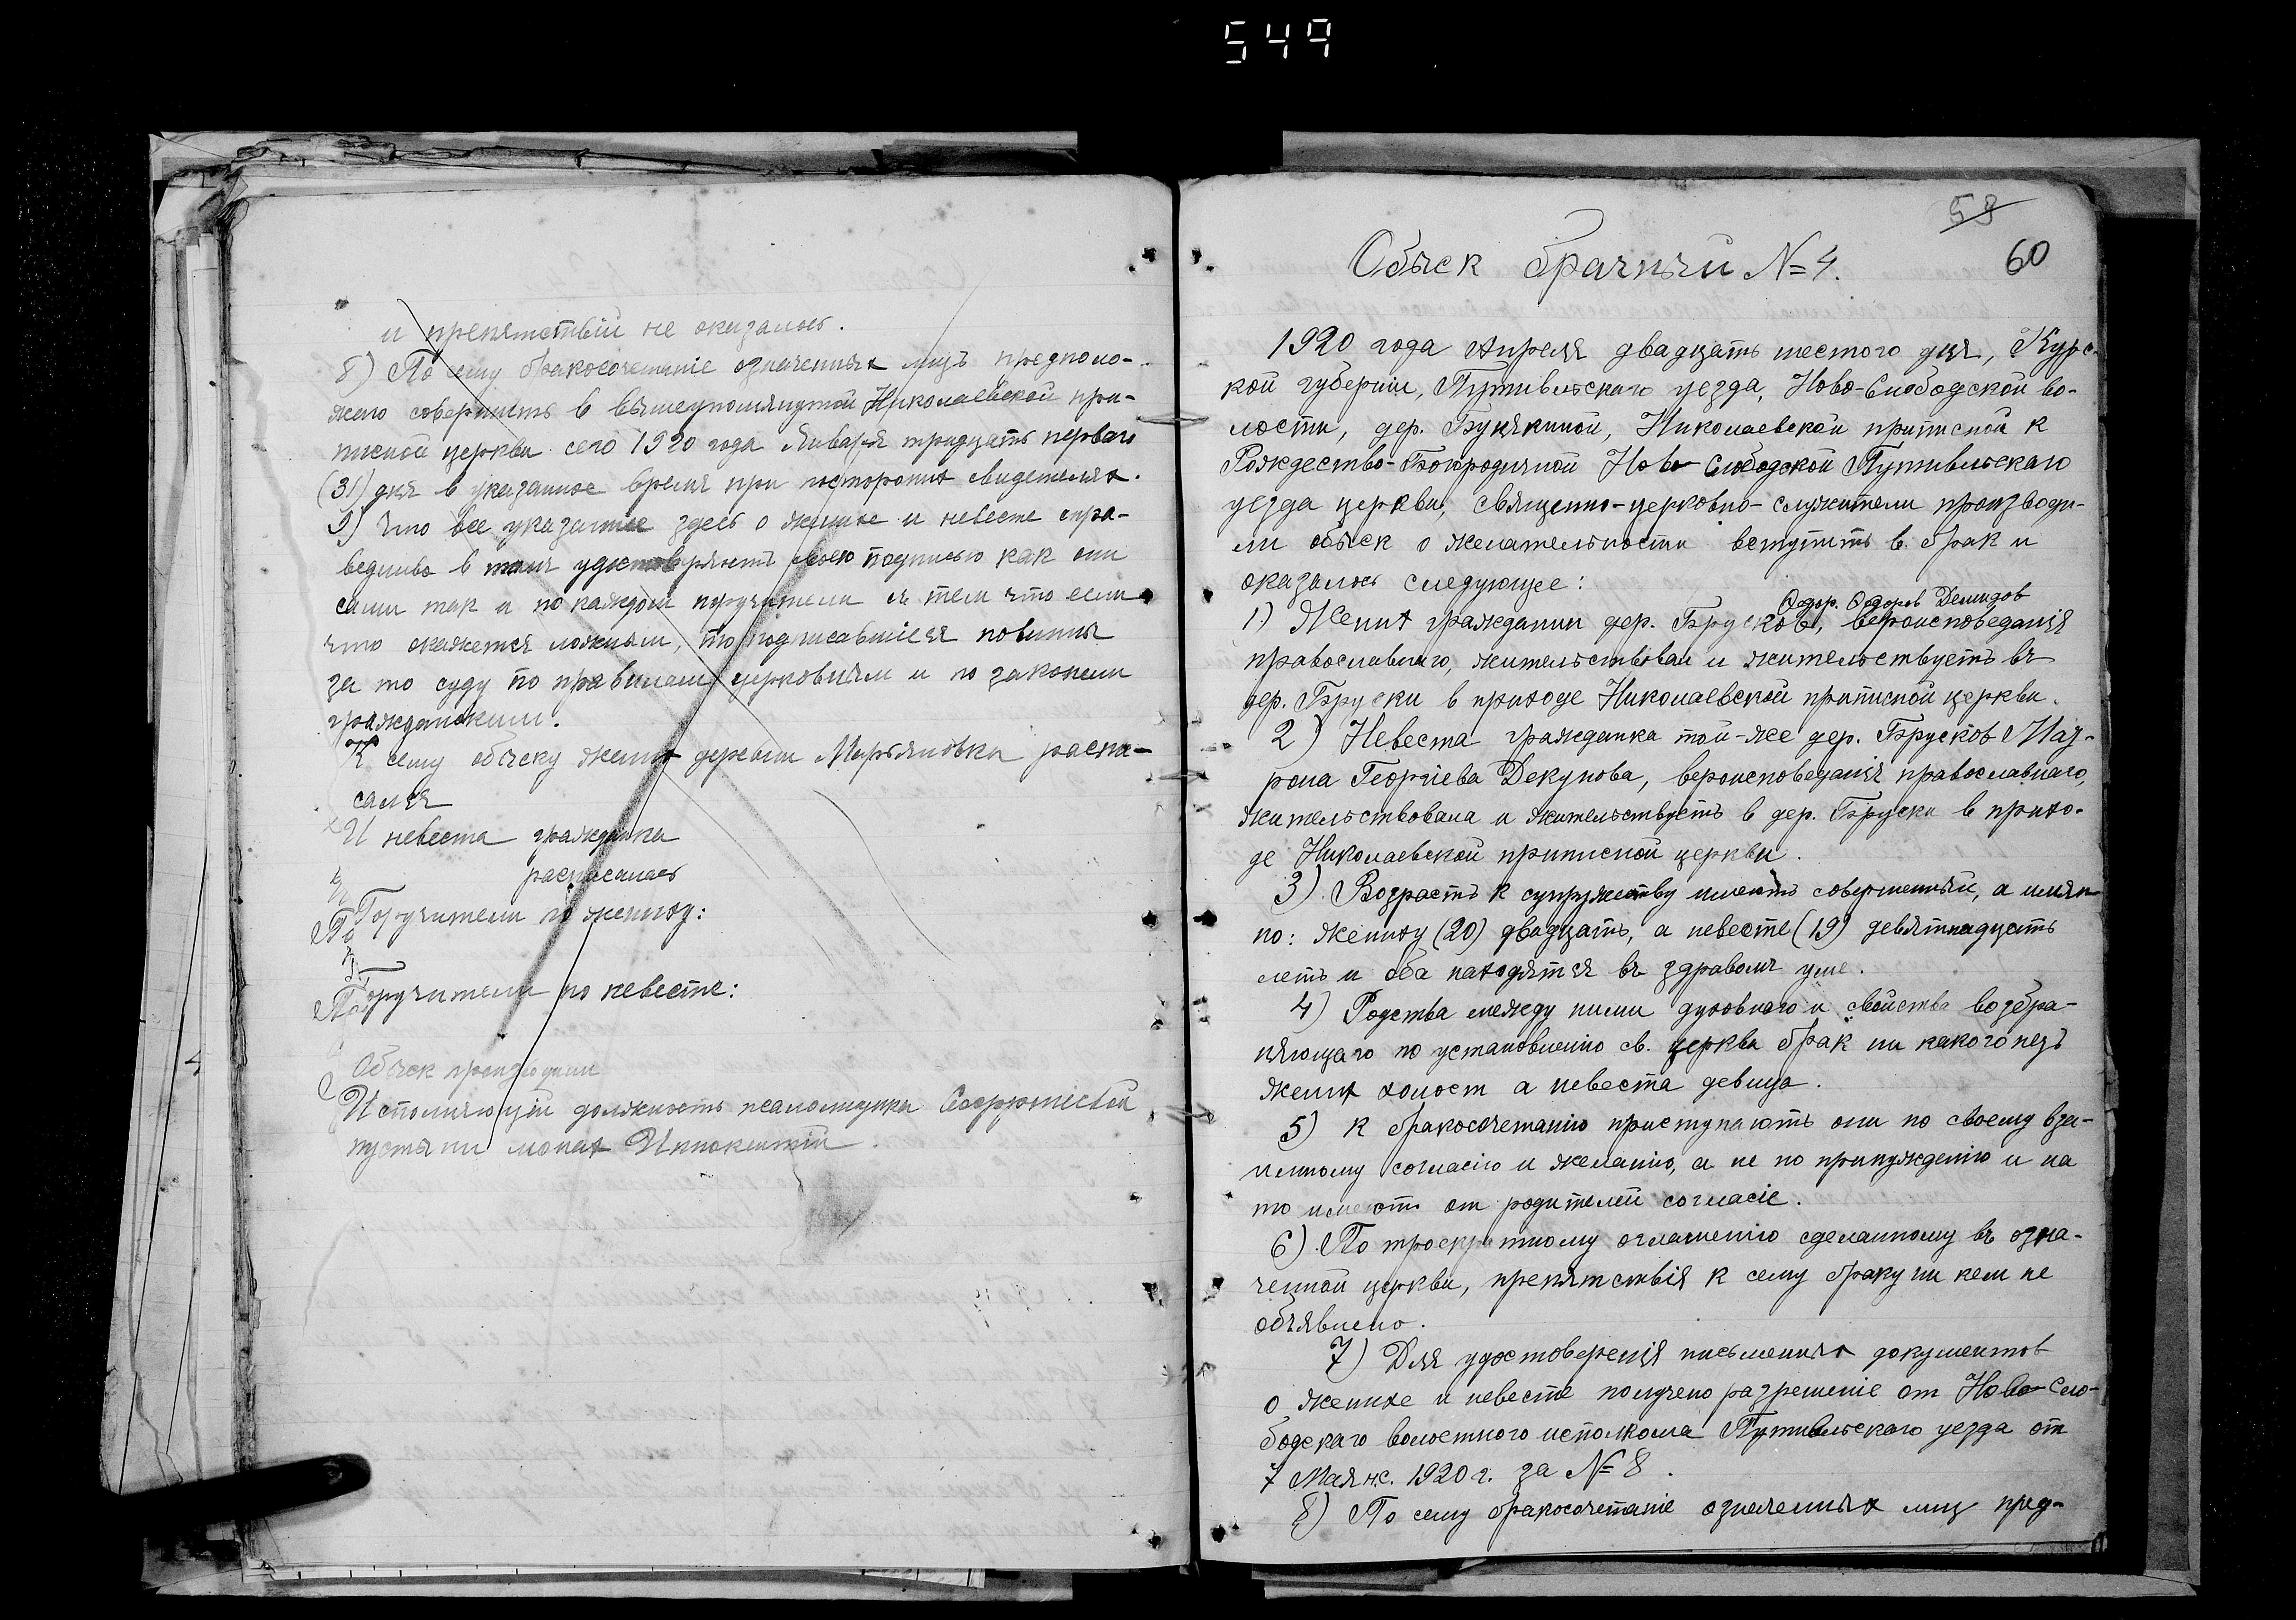 549
и препятствий не оказалось.
8) По сему бракосочетание означенных лицъ предполо-
жено совершить в вышеупомянутой Николаевской при-
писной церкви сего 1920 года Января тридцать перваго
(31) дня в указанное время при посторонних свидетелях.
9) Что все указанное здесь о женихе и невесте спра-
ведливо в том удостоверяют своею подписью как они
сами так и по каждом поручители с тем что если
что окажется ложным, то подписавшіеся повинны
за то суду по правилам церковным и по законам
гражданским.
К сему обыску жених деревни Марьяновка распи-
сался
И невеста гражданка
расписалась
Поручители по женихе:
Поручители по невесте:
Обыск производили
Исполняющій должность псаломщика Софроніевой
пустыни монах Иннокентій.
59
60
Обыск брачный №4.
1920 года Апреля двадцать шестого дня, Курс-
кой губернии, Путивльскаго уезда, Ново-Слободской во-
лости, дер. Бунякиной, Николаевской приписной к
Рождество-Богородичной Ново-Слободской Путивльскаго
уезда церкви, священно-церковно-служители производи-
ли обыск о желательности вступить в брак и
оказалось следующее:
Ѳедор. Ѳедоров Демидов
1.) Жених гражданин дер. Брусков, вероисповеданія
православнаго, жительствовал и жительствуетъ въ
дер. Бруски в приходе Николаевской приписной церкви.
2) Невеста гражданка той-же дер. Брусков Мат-
рона Георгіева Декунова, вероисповеданія православнаго,
жительствовала и жительствуетъ в дер. Бруски в прихо-
де Николаевской приписной церкви.
3) Возрастъ к супружеству имеютъ совершенный, а имян-
но: жениху (20) двадцать, а невесте (19) девятнадцать
летъ и оба находятся въ здравомъ уме.
4) Родства между ними духовнаго и свойства возбра-
няющаго по установленію св. церкви брак ни какого нетъ
жених холост а невеста девица.
5) К бракосочетанію приступаютъ они по своему вза-
имному согласію и желанію, а не по принужденію и на
то имеютъ от родителей согласіе.
6) По троекратному оглашенію сделанному въ озна-
ченной церкви, препятствія к сему браку ни кем не
объявлено.
7) Для удостоверенія письменных документов
о женихе и невесте получено разрешеніе от Ново-Сло-
бодскаго волостного исполкома Путивльскаго уезда от
7 Мая н.с. 1920 г. за № 8.
8) По сему бракосочетаніе означенных лиц пред-